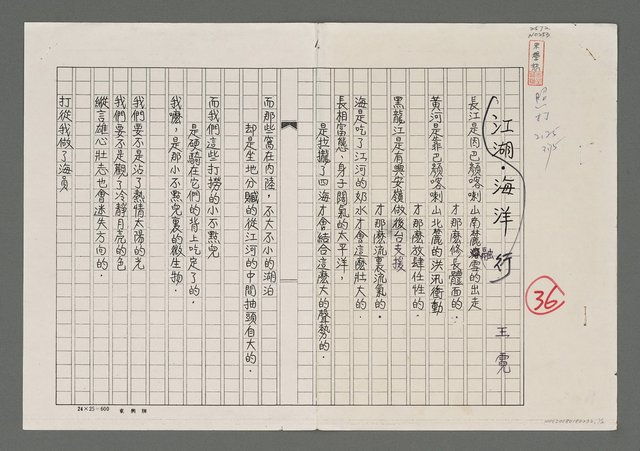 江湖·海洋行
王霓
長江是肉巴顏喀喇山南麓融雪的出走
才那麼修長體面的．
黃河是靠巴顏喀喇山北麓的洪汛衝動
才那麼放肆任性的．
黑龍江是有興安嶺做後台支援
才那麼流裏流氣的．
海是吃了江河的奶水才會這麼壯大的．
長相富態、身子闊氣的太平洋，
是拉攏了四海才會結合這麼大的聲勢的．
而那些窩在內陸，不大不小的湖泊
却是坐地分贓的從江河的中間抽頭自大的．
而我們這些打撈的小不點兒
是硬騎在它們的背上吃定了的．
我嘛，是那小不點兒裏的微生物．
我們要不是沾了熱情太陽的光
我們要不是觀了冷靜月亮的色
縱言雄心壯志也會迷失方向的．
打從我做了海員
36
照打
24×25=600